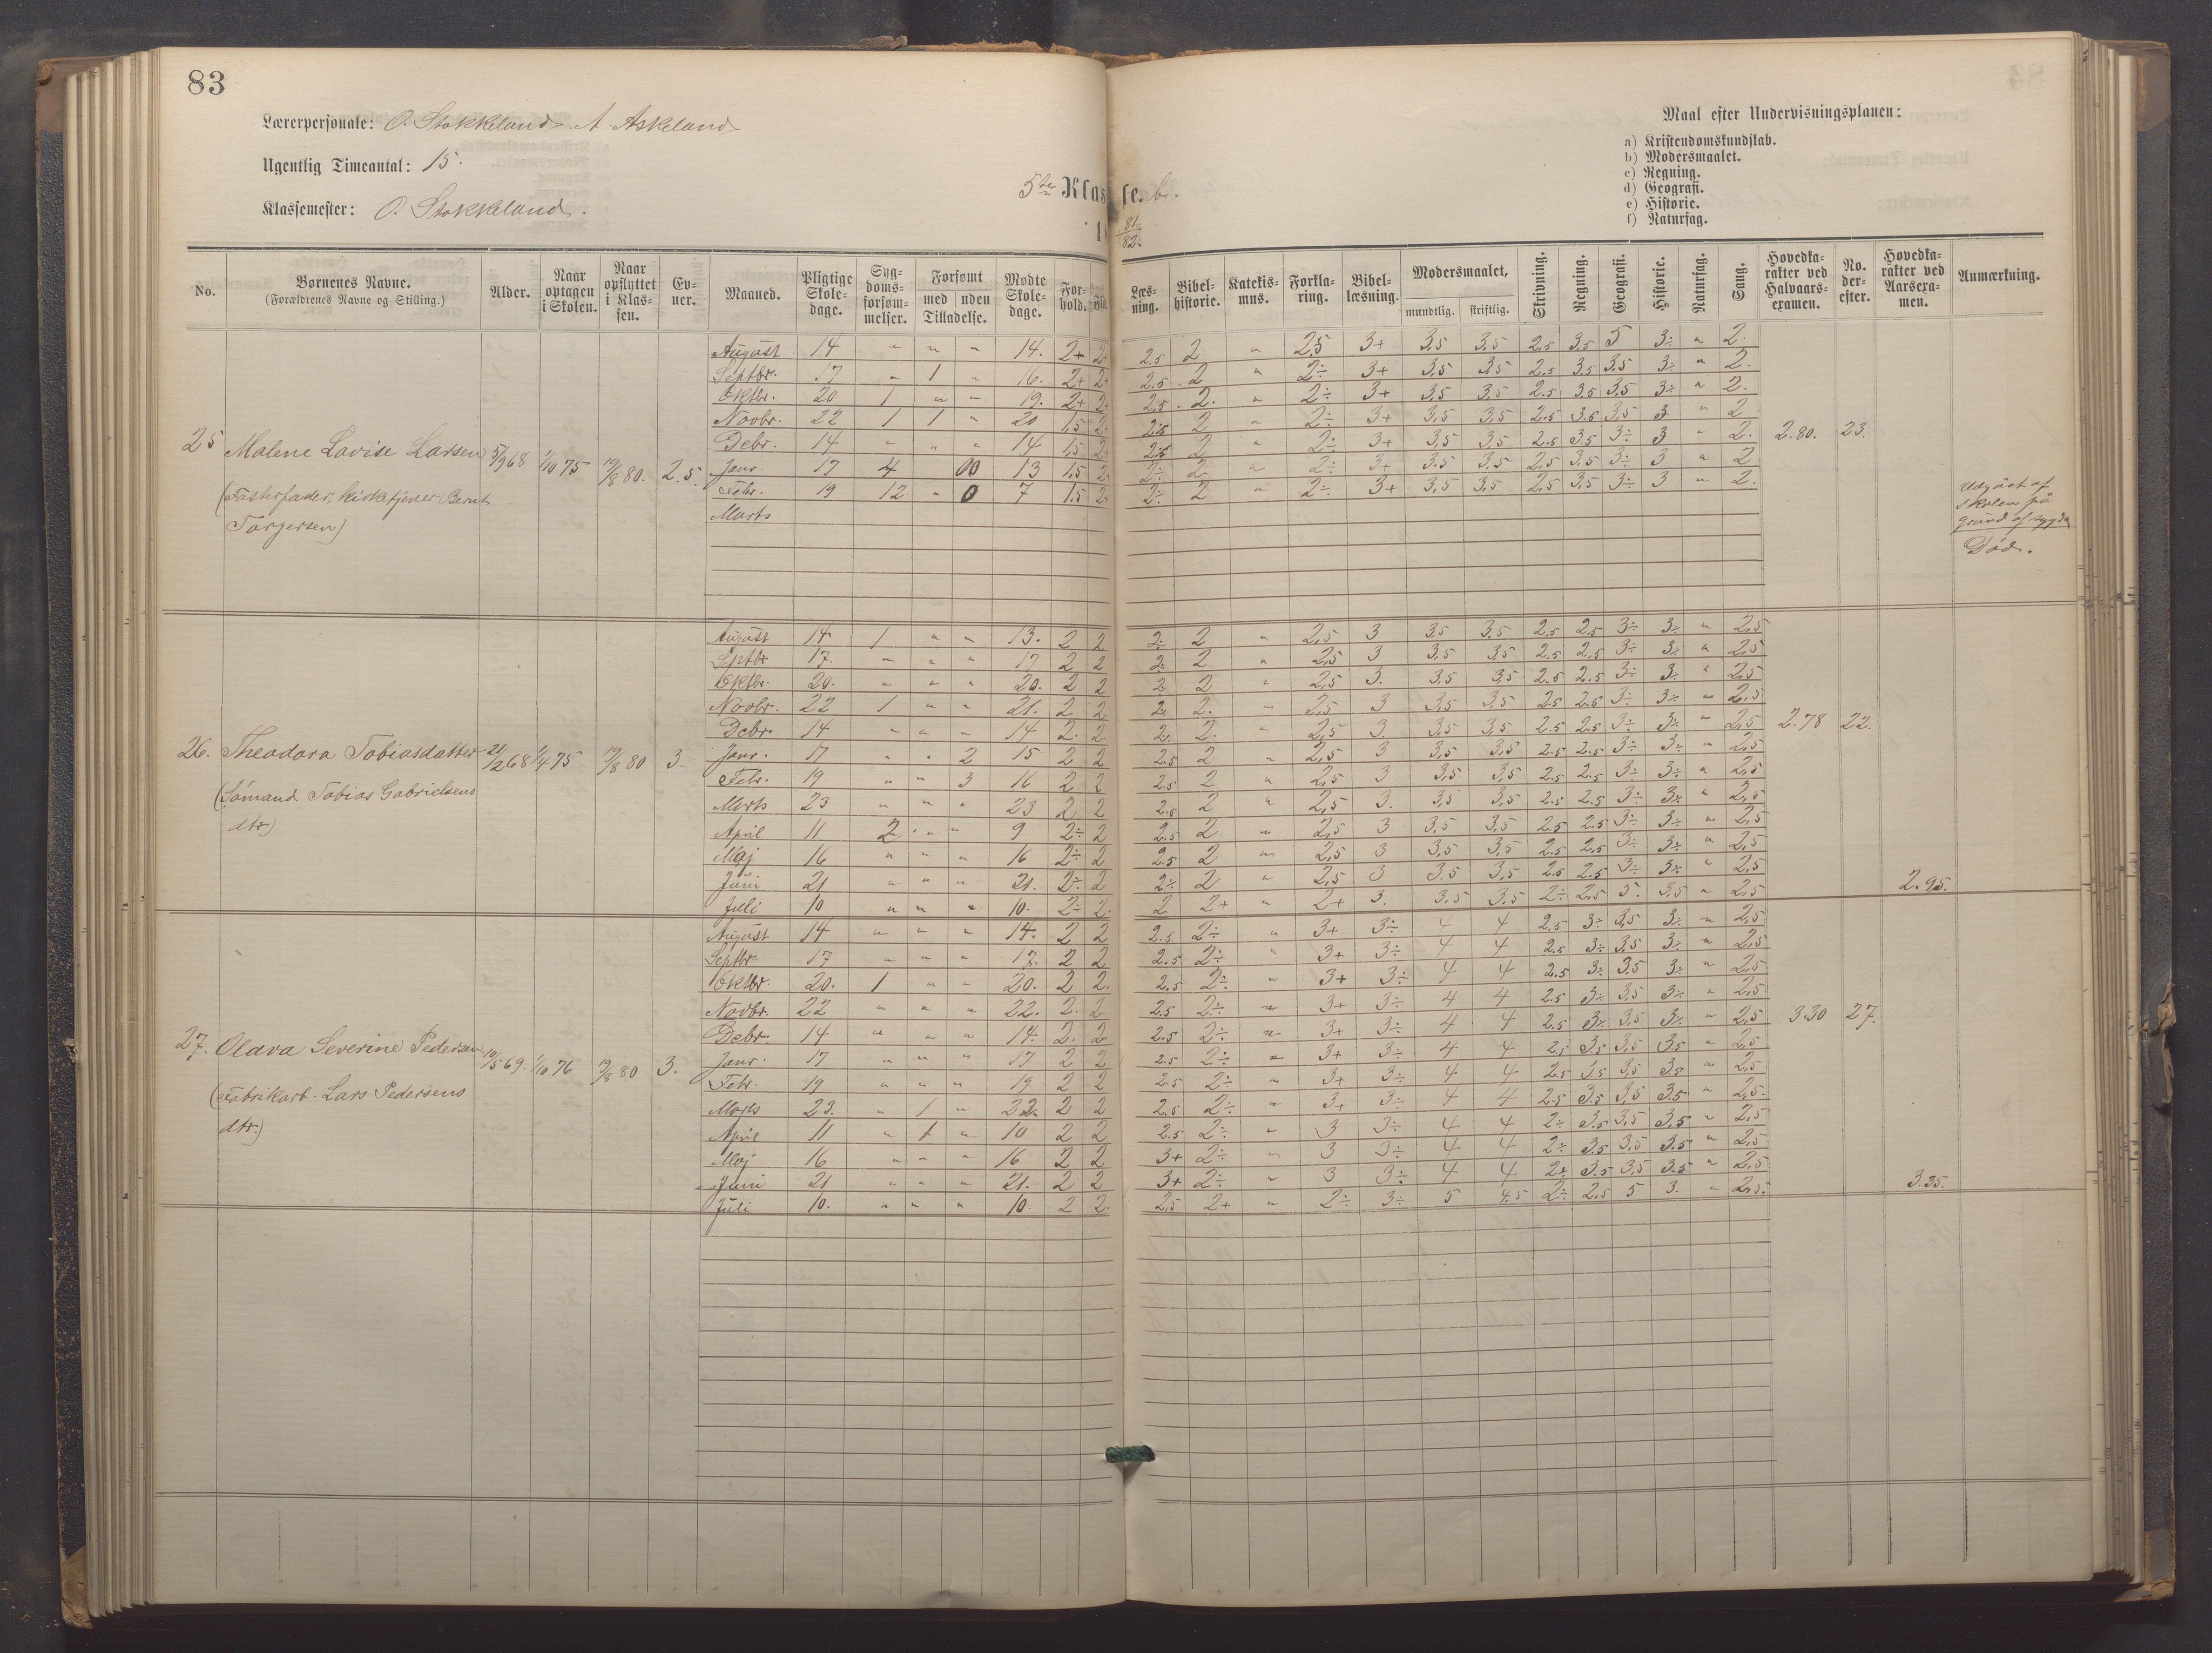 83
Lærerpersonale: O. Stokkeland. A. Askeland
Ugentlig Timeantal: 15.
Klassemester: O. Stokkeland.
5te Klasse. b.
18 81/82.
Maal efter Undervisningsplanen:
a) Kristendomskundskab.
b) Modersmaalet.
c) Regning.
d) Geografi.
e) Historie.
f) Naturfag.
No. Børnenes Navne. (Forældrenes Navne og Stilling.) Alder. Naar optagen i Skolen. Naar opflyttet i Klassen. Evner. Maaned. Pligtige Skoledage. Sygdomsforsømmelser. Forsømt med uden Tilladelse. Mødte Skoledage. Forhold. Læsning. Bibelhistorie. Katekismus. Forklaring. Bibellæsning. Modersmaalet, mundtlig. skriftlig. Skrivning. Regning. Geografi. Historie. Naturfag. Sang. Hovedkarakter ved Halvaarsexamen. No. derefter. Hovedkarakter ved Aarsexamen. Anmærkning.
25 Malene Lovise Larsen 5/9 68 1/10 75 19/8 80. 2.5.
(Fosterfader, kirketjener Bernt
Torjersen)
August 14 " " " 14. 2+ 2+ 2.5 2 " 2,5 3+ 3,5 3,5 2.5 3.5 5 3÷ " 2.
Septbr. 17 " 1 " 16. 2+ 2+ 2.5. 2 " 2÷ 3+ 3,5 3,5 2.5 3.5 3,5 3÷ " 2.
Oktbr. 20 1 " " 19. 2+ 2+ 2.5. 2. " 2÷ 3+ 3,5 3,5 2.5 3.5 3,5 3÷ " 2.
Novbr. 22 1 1 " 20 1,5 2+ 2 " 2÷ 3+ 3,5 3,5 2.5 3.5 3,5 3 " 2
Debr. 14 " " " 14 1,5 2+ 2 " 2÷ 3+ 3,5 3,5 2.5 3.5 3÷ 3 " 2. 2.80. 23.
Janr. 17 4 00 13 1,5 2+ 2÷ 2 " 2÷ 3+ 3.5 3,5 2,5 3,5 3÷ 3 " 2
Febr. 19 12 " 0 7 1,5 2+ 2÷ 2 " 2÷ 3+ 3,5 3,5 2,5 3,5 3÷ 3 " 2.
Marts
Udgået af
skolen på
grund af sygdom
Død.
26. Theodora Tobiasdatter 21/2 68 1/4 75 19/8 80 3.
(Sømand Tobias Gabrielsens
dtr)
August 14 1 " " 13. 2 2 2÷ 2 " 2,5 3 3,5 3.5 2.5 2.5 3÷ 3÷ " 2,5
Septbr 17. " " " 17 2 2 2÷ 2 " 2,5 3 3,5 3,5 2.5 2.5 3÷ 3÷ " 2,5
Oktbr. 20. " " " 20. 2 2 2 2 " 2,5 3. 3.5 3,5 2.5 2.5 3÷ 3÷ " 2,5
Novbr. 22 1 " " 21. 2 2 2. 2. " 2,5 3 3,5 3,5 2.5 2.5 3÷ 3÷ " 2,5
Debr. 14 " " " 14 2. 2 2. 2. " 2,5 3 3,5 3,5 2.5 2.5 3÷ 3÷ " 2,5 2.78 22.
Janr. 17 " " 2 15 2 2 2.5 2 " 2,5 3 3,5 3,5 2.5 2.5 3÷ 3÷ " 2,5
Febr. 19 " " 3 16 2 2 2.5 2 " 2,5 3 3,5 3,5 2.5 2.5 3÷ 3÷ " 2,5
Marts 23 " " " 23 2 2 2.5 2 " 2,5 3. 3,5 3,5 2.5 2.5 3÷ 3÷ " 2,5
April 11 2 " " 9 2÷ 2 2.5 2 " 2,5 3 3,5 3,5 2.5 2.5 3÷ 3÷ " 2,5
Maj 16 " " " 16 2÷ 2 2.5 2 " 2,5 3 3,5 3,5 2.5 2.5 3÷ 3÷ " 2,5
Juni 21 " " " 21. 2÷ 2 2÷ 2 " 2,5 3 3.5 3,5 2.5 2.5 3÷ 3÷ " 2,5
Juli 10 " " " 10. 2÷ 2. 2 2+ " 2+ 3. 3,5 3,5 2÷ 2,5 5. 3,5 " 2,5 2.95.
27. Olava Severine Pedersen 10/5 69. 1/10 76 19/8 80 3.
(Fabrikarb. Lars Pedersens
dtr.)
August 14 " " " 14. 2 2 2.5 2÷ " 3+ 3÷ 4 4 2.5 3÷ 3,5 3÷ " 2,5
Septbr. 17 " " " 17. 2 2 2.5 2÷ " 3+ 3÷ 4 4 2.5 3÷ 3,5 3÷ " 2,5
Oktbr. 20. 1 " " 20. 2 2. 2.5 2÷ " 3+ 3÷ 4 4 2.5 3÷ 3,5 3÷ " 2,5
Novbr. 22 " " " 22. 2. 2. 2.5 2÷ " 3+ 3÷ 4 4 2.5 3÷ 3,5 3÷ " 2,5
Debr. 14 " " " 14. 2. 2 2.5 2÷ " 3+ 3÷ 4 4 2.5 3÷ 3,5 3÷ " 2,5 3.30 27.
Janr. 17 " " " 17 2 2 2.5 2÷ " 3+ 3÷ 4 4 2.5 3.5 3,5 3.5 " 2,5
Febr. 19 " " " 19 2 2 2.5 2÷ " 3+ 3÷ 4 4 2.5 3.5 3,5 3.5 " 2,5
Marts 23. " 1 " 22. 2 2 2.5 2÷ " 3+ 3÷ 4 4 2.5 3.5 3,5 3.5 " 2,5.
April 11 " 1 " 10 2 2 2.5 2÷ " 3 3÷ 4 4 2÷ 3.5 3,5 3.5 " 2,5
Maj 16 " " " 16 2 2 3+ 2÷ " 3 3÷ 4 4 2÷ 3.5 3,5 3.5 " 2,5
Juni 21 " " " 21. 2 2 3+ 2÷ " 3 3÷ 4 4 2÷ 3.5 3,5 3.5 " 2,5
Juli 10. " " " 10. 2 2. 2,5 2+ " 2÷ 3÷ 5 4.5 2÷ 2,5 5 3. " 2,5. 3.35.